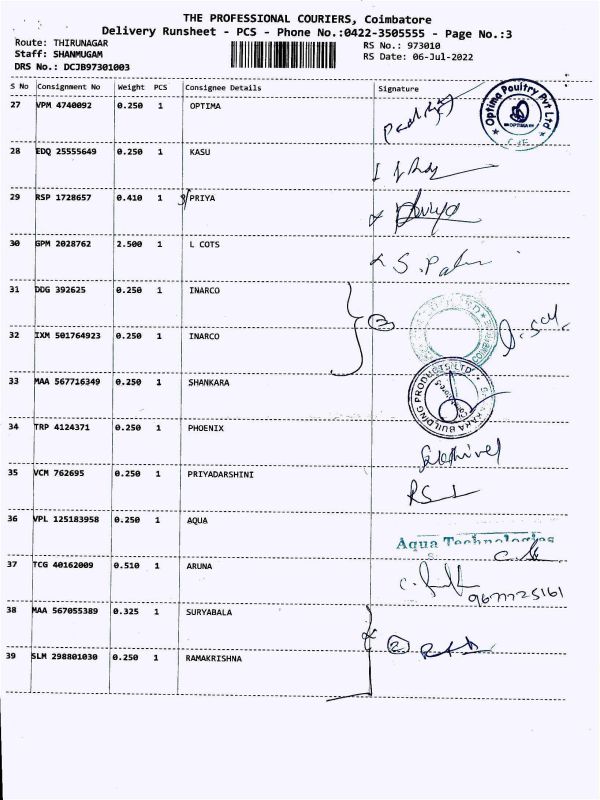 THE PROFESSIONAL COURIERS, Coimbatore
Delivery Runsheet - PCS - Phone No.:0422-3505555 - Page No.:3
Route: THIRUNAGAR
RS No.: 973010
Staff: SHANMUGAM
RS Date: 06-Jul-2022
DRS No.: DCJB97301003
S No Consignment No Weight PCS Consignee Details Signature
27 VPM 4740092 0.250 1 OPTIMA
Optima Poultry Pvt Ltd
OPTIMA
28 EDQ 25555649 0.250 1 KASU
29 RSP 1728657 0.410 1 PRIYA
30 GPM 2028762 2.500 1 L COTS
31 DDG 392625 0.250 1 INARCO
32 IXM 501764923 0.250 1 INARCO
33 MAA 567716349 0.250 1 SHANKARA
BUILDING PRODUCTS LTD
34 TRP 4124371 0.250 1 PHOENIX
35 VCM 762695 0.250 1 PRIYADARSHINI
36 VPL 125183958 0.250 1 AQUA
Aqua Technologies
37 TCG 40162009 0.510 1 ARUNA
38 MAA 567055389 0.325 1 SURYABALA
2
39 SLM 298801030 0.250 1 RAMAKRISHNA